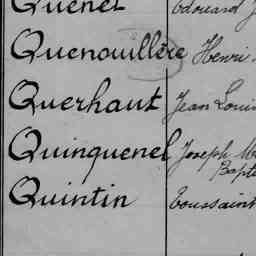 Quenet Edouard J
Quenouillère Henri
Querhaut Jean Louis
Quinquenel Joseph M
Bapt
Quintin Toussaint